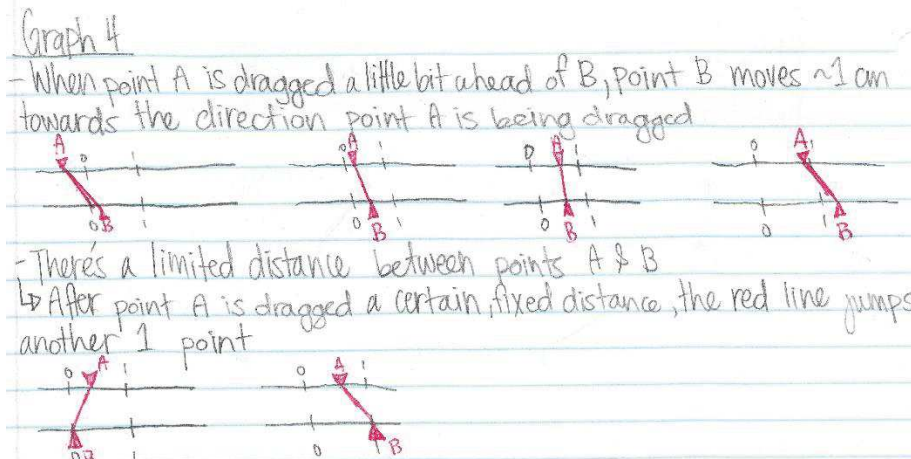 Graph 4
- When point A is dragged a little bit ahead of B, point B moves ~1 cm
towards the direction point A is being dragged
A 0 1 0 A 1 0 A 1 0 A 1
0 B 1 0 B 1 0 B 1 0 1 B
- There's a limited distance between points A & B
↳ After point A is dragged a certain, fixed distance, the red line jumps
another 1 point
0 A 1 0 A 1
0 B 1 0 1 B